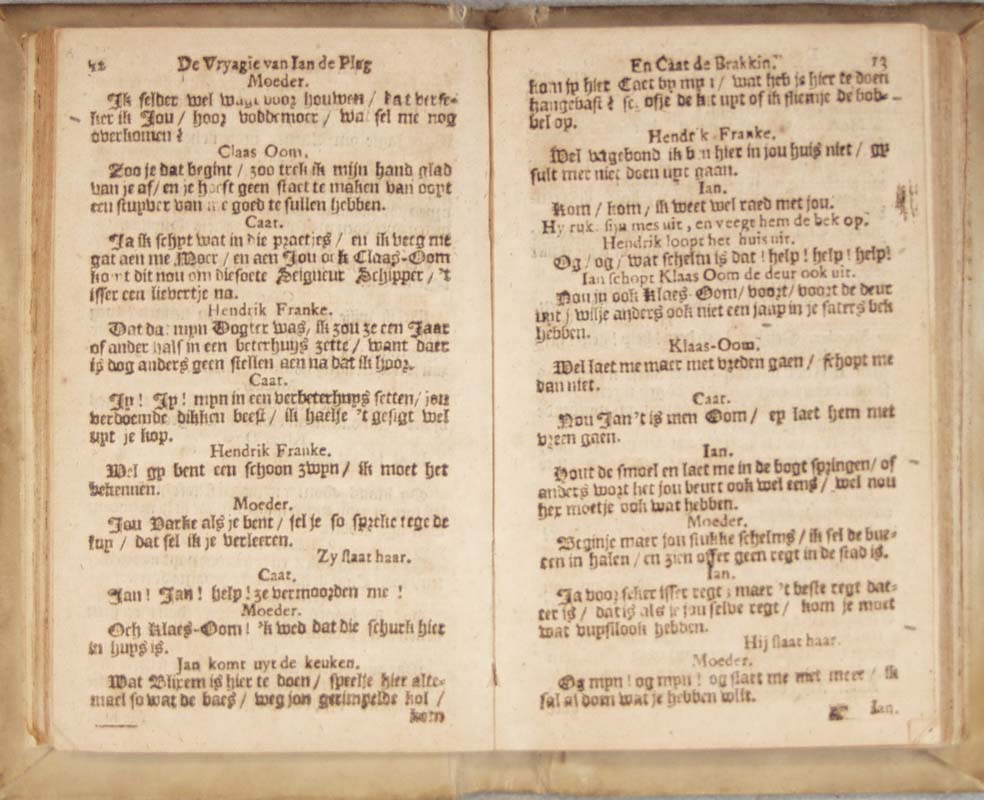 De Vryagie van Ian de Pleg
Moeder.
Ik selder wel voor houwen / dat verse-
ker ik Jou / hoor voddemoer / wat sel me nog
overkomen?
Claas Oom.
Zoo je dat begint / zoo trek ik mijn hand glad
van je af / en je hoeft geen staet te maken van oopt
een stuyver van me goed te sullen hebben.
Caat.
Ja ik schyt wat in die praetjes / en ik veeg me
gat aen me Moer / en aen Jou ook Claas-Oom
komt dit nou om diesoete Seigneur Schipper / 't
isser een lievertje na.
Hendrik Franke.
Dat dat myn Dogter was, ik zou ze een Jaar
of ander half in een beterhuys zette / want daer
is dog anders geen stellen aen na dat ik hoor.
Caat.
Jy! Jy! myn in een verbeterhuys setten / jou
verdoemde dikken beest / ik haelje 't gesigt wel
uyt je kop.
Hendrik Franke.
Wel gy bent een schoon zwyn / ik moet het
bekennen.
Moeder.
Jou Varke als je bent / sel je so spreke tege de
luy / dat sel ik je verleeren.
Zy slaat haar.
Caat.
Jan! Jan! help! ze vermoorden me!
Moeder.
Och Klaes-Oom! 'k wed dat die schurk hier
in huys is.
Jan komt uyt de keuken.
Wat Blixem is hier te doen / speelje hier alte-
mael so wat de baes / weg jou gerimpelde kol /
kom
En Caat de Brakkin. 13
kom jy hier Caet by my / wat heb jy hier te doen
hangebast? of je de uyt of ik je de bob-
bel op.
Hendrik Franke.
Wel vagebond ik ben hier in jou huis niet / gy
sult met niet doen uyt gaan.
Ian.
Kom / kom / ik weet wel raed met jou.
Hy rukt sijn mes uit, en veegt hem de bek op.
Hendrik loopt het huis uit.
Og / og / wat schelm is dat! help! help! help!
Ian schopt Klaas Oom de deur ook uit.
Nou jy ook Klaes-Oom / voort / voort de deur
uyt / wilje anders ook niet een jaap in je saters bek
hebben.
Klaas-Oom.
Wel laet me maer met vreden gaen / schopt me
dan niet.
Caat.
Nou Jan 't is myn Oom / ey laet hem met
vreen gaen.
Ian.
Hout de smoel en laet me in de bogt springen / of
anders wort het jou beurt ook wel eens / wel nou
hex moetje ook wat hebben.
Moeder.
Beginje maer jou stukke schelms / ik sel de bue-
ren in halen / en zien offer geen regt in de stad is.
Ian.
Ja voor seker isser regt, maer 't beste regt dat-
ter is / dat is als je jou selve regt / kom je moet
wat hebben.
Hij slaat haar.
Moeder.
Og myn! og myn! og slaet me niet meer / ik
sal al dom wat je hebben wilt.
Ian.